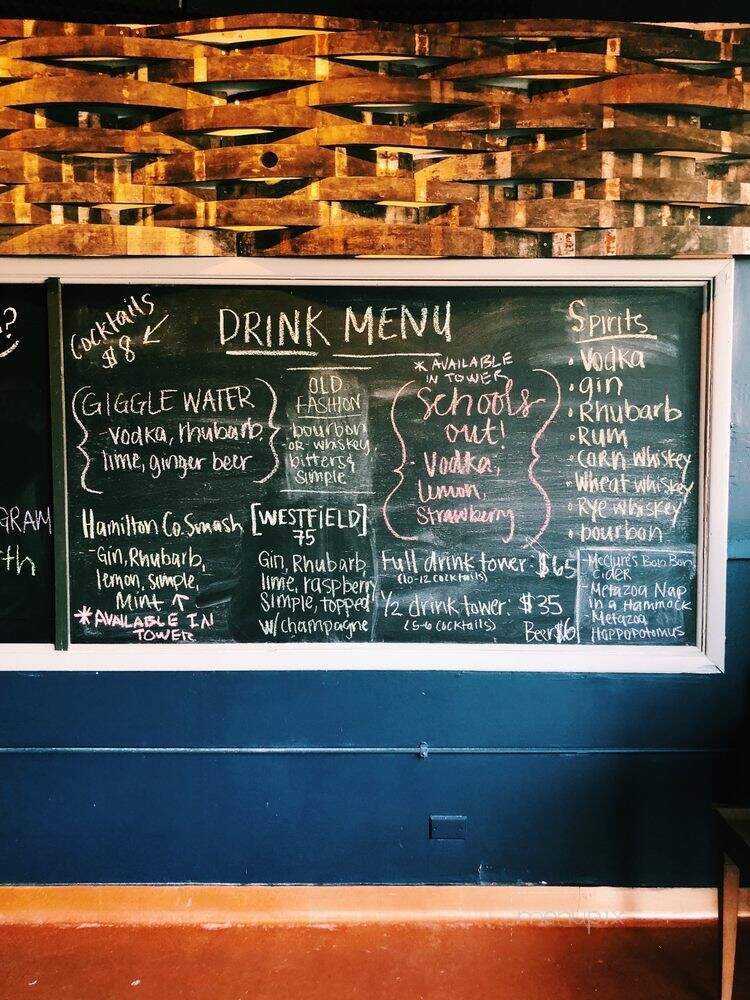 ?
GRAM
th
Cocktails
$8
DRINK MENU
GIGGLE WATER
-vodka, rhubarb,
lime, ginger beer
OLD
FASHION
bourbon
-or- whiskey,
bitters &
simple
* AVAILABLE
IN TOWER
Schools
out!
- Vodka,
lemon,
Strawberry
Spirits
• Vodka
• gin
• Rhubarb
• Rum
• Corn whiskey
• Wheat whiskey
• Rye whiskey
• bourbon
Hamilton Co. Smash
-Gin, Rhubarb,
lemon, simple,
Mint
* AVAILABLE IN
TOWER
[WESTFIELD]
75
Gin, Rhubarb,
lime, raspberry
Simple, topped
w/ champagne
Full drink tower: $65
(10-12 cocktails)
1/2 drink tower: $35
(5-6 cocktails)
Beer $6
-McClure's Bon Bon
Cider
-Metazoa Nap
in a Hammock
-Metazoa
Hoppopotomus
menupix